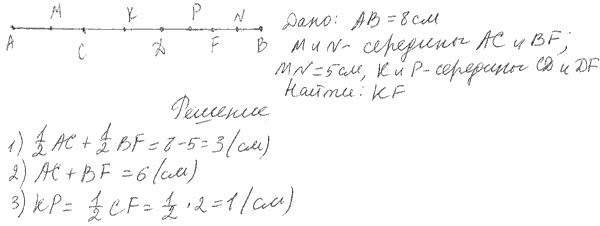 M K P N
A C D F B
Дано: AB = 8 см
M и N - середины AC и BF;
MN = 5 см, K и P - середины CD и DF
Найти: KF
Решение
1) 1/2 AC + 1/2 BF = 8 - 5 = 3 (см)
2) AC + BF = 6 (см)
3) KP = 1/2 CF = 1/2 · 2 = 1 (см)